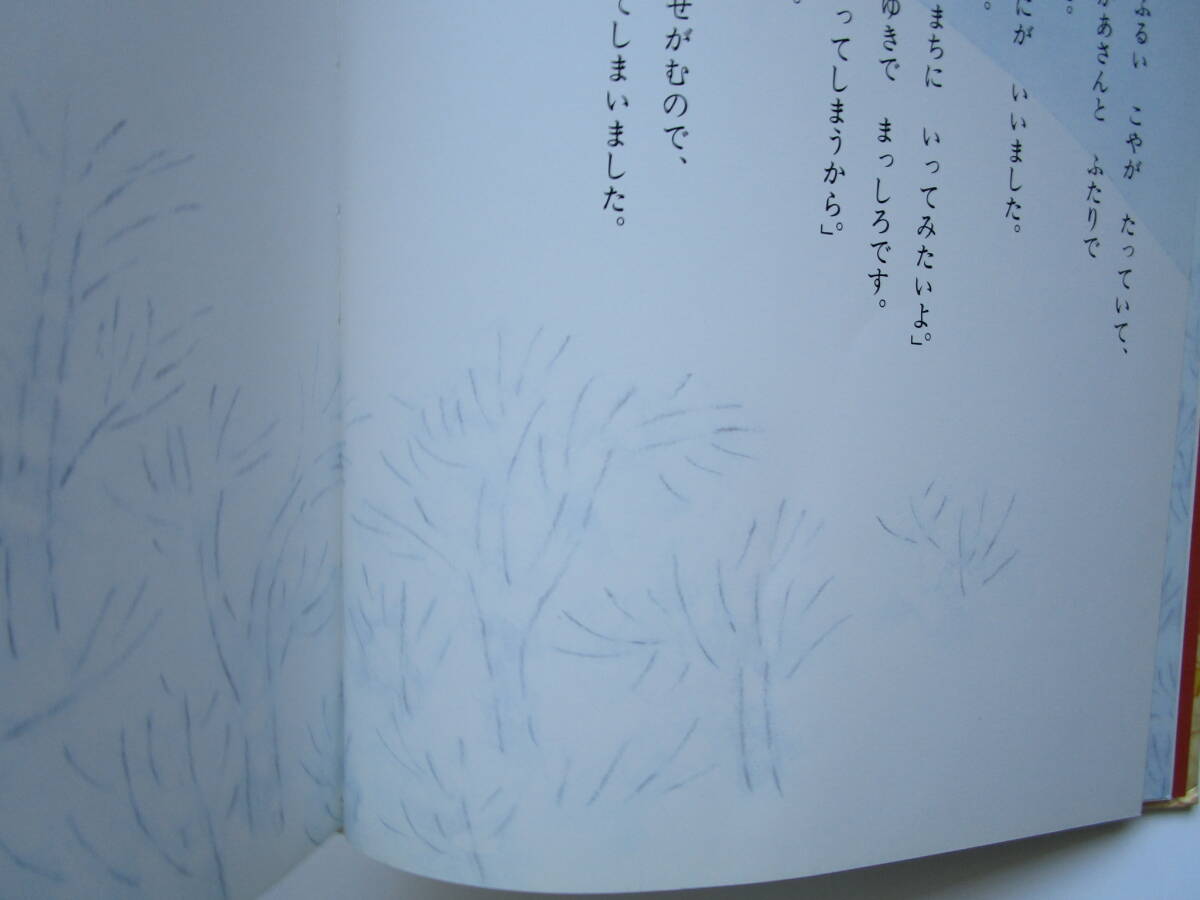 ふるい こやが たっていて、
かあさんと ふたりで
。
にが いいました。
。
まちに いってみたいよ。」
ゆきで まっしろです。
ってしまうから。」
。
せがむので、
てしまいました。